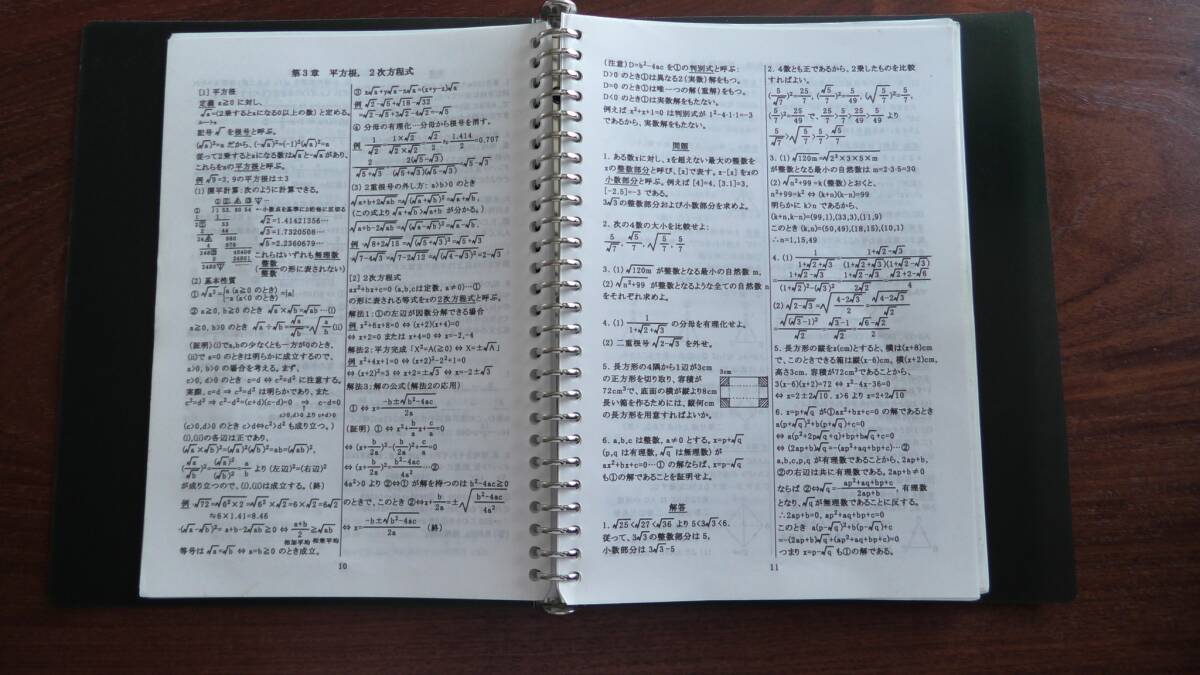 第3章 平方根，2次方程式
[1] 平方根
定義 a≧0 に対し，
√a=(2乗するとaになる0以上の数) と定める。
記号 √ を根号と呼ぶ。
(√a)²=a だから，(-√a)²=(-1)²(√a)²=a
従って2乗するとaになる数は√aと-√aがあり，
これらをaの平方根と呼ぶ。
例 √9=3，9の平方根は±3
(1) 開平計算：次のように計算できる。
√2=1.41421356…
√3=1.7320508…
√5=2.2360679…
これらはいずれも無理数
(整数/整数 の形に表されない)
(2) 基本性質
① √a²={a (a≧0 のとき) -a (a<0 のとき)}=|a|
② a≧0，b≧0 のとき √a×√b=√ab …(i)
a≧0，b>0 のとき √a÷√b=√a/√b=√(a/b) (ii)
(証明) (i)でa,bの少なくとも一方が0のとき，
(ii)で a=0 のときは明らかに成立するので，
a>0，b>0 の場合を考える。まず，
c>0，d>0 のとき c=d ⇔ c²=d² に注意する。
実際，c=d ⇒ c²=d² は明らかであり，また
c²=d² ⇒ c²-d²=(c+d)(c-d)=0 ⇒ c-d=0
c>0,d>0 より c+d>0
(c>0,d>0 のとき c>d⇔c²>d² も成り立つ。)
(i),(ii)の各辺は正であり，
(√a×√b)²=(√a)²(√b)²=ab=(√ab)²，
(√a/√b)²=(√a)²/(√b)²=a/b より (左辺)²=(右辺)²
が成り立つので，(i),(ii)は成立する。(終)
例 √72=√(6²×2)=√6²×√2=6×√2=6√2
≒6×1.41=8.46
(√a-√b)²=a+b-2√ab≧0 ⇔ (a+b)/2≧√ab
相加平均 相乗平均
等号は √a=√b ⇔ a=b≧0 のとき成立。
③ x√a+y√a-z√a=(x+y-z)√a
例 √2-√5+√18-√32
=√2-√5+3√2-4√2=-√5
④ 分母の有理化…分母から根号を消す。
例 1/√2=(1×√2)/(√2×√2)=√2/2≒1.414/2=0.707
2/(√5+√3)=2(√5-√3)/((√5+√3)(√5-√3))=√5-√3
(3) 2重根号の外し方：a>b>0 のとき
√(a+b+2√ab)=√(√a+√b)²=√a+√b，
(この式より √a+√b>√(a+b) が分かる。)
√(a+b-2√ab)=√(√a-√b)²=√a-√b．
例 √(8+2√15)=√(√5+√3)²=√5+√3
√(7-4√3)=√(7-2√12)=√(√4-√3)²=2-√3
[2] 2次方程式
ax²+bx+c=0 (a,b,cは定数，a≠0)…①
の形に表される等式をxの2次方程式と呼ぶ。
解法1：①の左辺が因数分解できる場合
例 x²+6x+8=0 ⇔ (x+2)(x+4)=0
⇔ x+2=0 または x+4=0 ⇔ x=-2,-4
解法2：平方完成「X²=A(≧0) ⇔ X=±√A」
例 x²+4x+1=0 ⇔ (x+2)²-2²+1=0
⇔ (x+2)²=3 ⇔ x+2=±√3 ⇔ x=-2±√3
解法3：解の公式(解法2の応用)
① ⇔ x=(-b±√(b²-4ac))/2a
(証明) ① ⇔ x²+(b/a)x+c/a=0
⇔ (x+b/2a)²-(b/2a)²+c/a=0
⇔ (x+b/2a)²=(b²-4ac)/4a² …②
4a²>0 より ②⇔① が解を持つのは b²-4ac≧0
のときで，このとき ②⇔x+b/2a=±√((b²-4ac)/4a²)
⇔ x=(-b±√(b²-4ac))/2a (終)
10
(注意) D=b²-4ac を①の判別式と呼ぶ：
D>0 のとき①は異なる2(実数)解をもつ。
D=0 のとき①は唯一つの解(重解)をもつ。
D<0 のとき①は実数解をもたない。
例えば x²+x+1=0 は判別式が 1²-4・1・1=-3
であるから，実数解をもたない。
問題
1. ある数xに対し，xを超えない最大の整数を
xの整数部分と呼び，[x]で表す。x-[x] をxの
小数部分と呼ぶ。例えば [4]=4，[3.1]=3，
[-2.5]=-3 である。
3√3の整数部分および小数部分を求めよ。
2. 次の4数の大小を比較せよ：
5/7，√5/7，√(5/7)，5/√7
3. (1) √120m が整数となる最小の自然数 m，
(2) √(n²+99) が整数となるような全ての自然数 n
をそれぞれ求めよ。
4. (1) 1/(1+√2+√3) の分母を有理化せよ。
(2) 二重根号 √(2-√3) を外せ。
5. 長方形の4隅から1辺が3cm
の正方形を切り取り，容積が
72cm³で，底面の横が縦より8cm
長い箱を作るためには，縦何cm
の長方形を用意すればよいか。
3cm
6. a,b,c は整数，a≠0 とする。x=p+√q
(p,q は有理数，√q は無理数) が
ax²+bx+c=0…① の解ならば，x=p-√q
も①の解であることを証明せよ。
解答
1. √25<√27<√36 より 5<3√3<6．
従って，3√3 の整数部分は 5，
小数部分は 3√3-5
11
2. 4数とも正であるから，2乗したものを比較
すればよい。
3. (1) √120m=√(2³×3×5×m)
が整数となる最小の自然数は m=2・3・5=30
(2) √(n²+99)=k(整数)とおくと，
n²+99=k² ⇔ (k+n)(k-n)=99
明らかに k>n であるから，
(k+n,k-n)=(99,1),(33,3),(11,9)
このとき (k,n)=(50,49),(18,15),(10,1)
∴n=1,15,49
5. 長方形の縦をx(cm)とすると，横は(x+8)cm
で，このときできる箱は縦(x-6)cm，横(x+2)cm，
高さ3cm．容積が72cm³であることから，
3(x-6)(x+2)=72 ⇔ x²-4x-36=0
⇔ x=2±2√10．x>6 より x=2+2√10
6. x=p+√q が①ax²+bx+c=0 の解であるとき
a(p+√q)²+b(p+√q)+c=0
⇔ a(p²+2p√q+q)+bp+b√q+c=0
⇔ (2ap+b)√q=-(ap²+aq+bp+c)…②
a,b,c,p,q が有理数であることから，2ap+b，
②の右辺は共に有理数である。2ap+b≠0
ならば ②⇔√q=-(ap²+aq+bp+c)/(2ap+b)，有理数
となり，√qが無理数であることに反する。
∴2ap+b=0，ap²+aq+bp+c=0
このとき a(p-√q)²+b(p-√q)+c
=-(2ap+b)√q+(ap²+aq+bp+c)=0
つまり x=p-√q も①の解である。